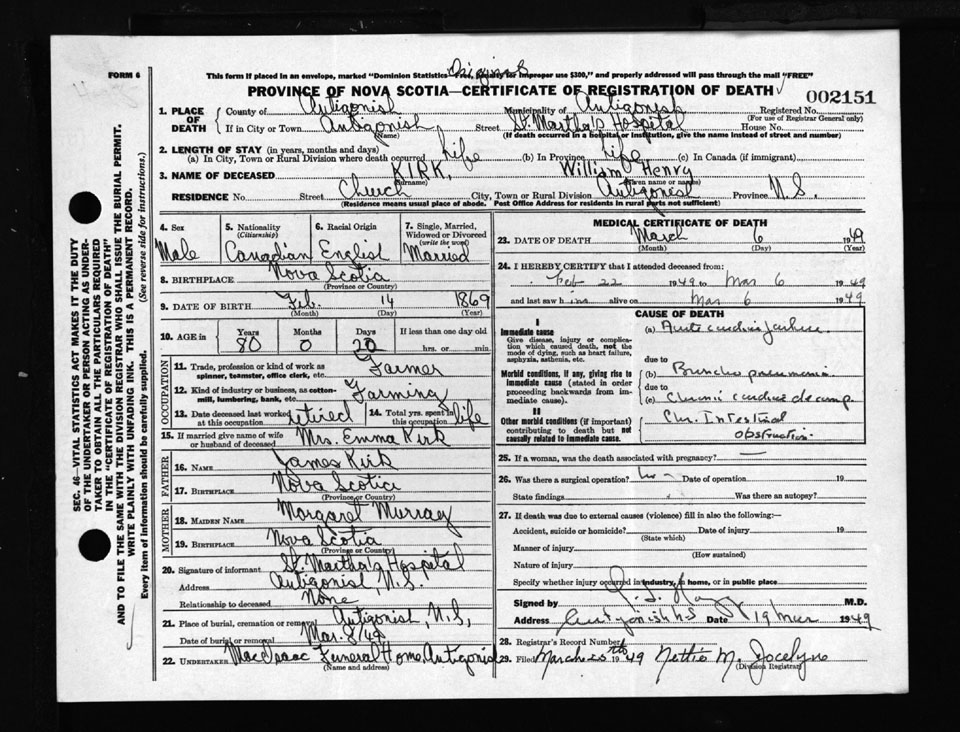 FORM 6
Original
This form if placed in an envelope, marked "Dominion Statistics—Free, for improper use $300," and properly addressed will pass through the mail "FREE"
PROVINCE OF NOVA SCOTIA—CERTIFICATE OF REGISTRATION OF DEATH
002151
1. PLACE OF DEATH
County of Antigonish Municipality of Antigonish Registered No.
(For use of Registrar General only)
If in City or Town Antigonish Street St. Martha's Hospital House No.
(Name) (If death occurred in a hospital or institution, give the name instead of street and number)
2. LENGTH OF STAY (in years, months and days)
(a) In City, Town or Rural Division where death occurred Life (b) In Province Life (c) In Canada (if immigrant)
3. NAME OF DECEASED KIRK, William Henry
(Surname) (Given name or names)
RESIDENCE No. Street Church City, Town or Rural Division Antigonish Province N.S.
(Residence means usual place of abode. Post Office Address for residents in rural parts not sufficient)
4. Sex
Male
5. Nationality
(Citizenship)
Canadian
6. Racial Origin
English
7. Single, Married, Widowed or Divorced
(write the word)
Married
8. BIRTHPLACE Nova Scotia
(Province or Country)
9. DATE OF BIRTH Feb. 14 1869
(Month) (Day) (Year)
10. AGE in
Years Months Days If less than one day old
80 0 20 hrs. or min.
11. Trade, profession or kind of work as spinner, teamster, office clerk, etc. Farmer
12. Kind of industry or business, as cotton-mill, lumbering, bank, etc. Farming
13. Date deceased last worked at this occupation retired
14. Total yrs. spent in this occupation life
15. If married give name of wife or husband of deceased Mrs. Emma Kirk
FATHER
16. NAME James Kirk
17. BIRTHPLACE Nova Scotia
(Province or Country)
MOTHER
18. MAIDEN NAME Margaret Murray
19. BIRTHPLACE Nova Scotia
(Province or Country)
20. Signature of informant St. Martha's Hospital
Address Antigonish, N.S.
Relationship to deceased None
21. Place of burial, cremation or removal Antigonish, N.S.,
Date of burial or removal Mar. 8/49
22. UNDERTAKER MacIsaac Funeral Home, Antigonish
(Name and address)
MEDICAL CERTIFICATE OF DEATH
23. DATE OF DEATH March 6 1949
(Month) (Day) (Year)
24. I HEREBY CERTIFY that I attended deceased from:
Feb 22 1949 to Mar 6 1949
and last saw him alive on Mar 6 1949
CAUSE OF DEATH
I
Immediate cause
Give disease, injury or complication which caused death, not the mode of dying, such as heart failure, asphyxia, asthenia, etc.
(a) Acute cardiac failure
due to
Morbid conditions, if any, giving rise to immediate cause (stated in order proceeding backwards from immediate cause).
(b) Broncho pneumonia
due to
(c) Chronic cardiac decomp
II
Other morbid conditions (if important) contributing to death but not causally related to immediate cause.
Chr. Intestinal
obstruction.
25. If a woman, was the death associated with pregnancy?
26. Was there a surgical operation? No Date of operation 19
State findings Was there an autopsy?
27. If death was due to external causes (violence) fill in also the following:—
Accident, suicide or homicide? Date of injury 19
(State which)
Manner of injury
(How sustained)
Nature of injury
Specify whether injury occurred in industry, in home, or in public place
Signed by M.D.
Address Antigonish NS Date 19 Mar 1949
28. Registrar's Record Number
29. Filed March 20th 1949 Nettie M. Jocelyne
(Division Registrar)
SEC. 46—VITAL STATISTICS ACT MAKES IT THE DUTY
OF THE UNDERTAKER OR PERSON ACTING AS UNDER-
TAKER TO OBTAIN ALL THE PARTICULARS REQUIRED
IN THE "CERTIFICATE OF REGISTRATION OF DEATH"
AND TO FILE THE SAME WITH THE DIVISION REGISTRAR WHO SHALL ISSUE THE BURIAL PERMIT.
WRITE PLAINLY WITH UNFADING INK. THIS IS A PERMANENT RECORD.
Every item of information should be carefully supplied. (See reverse side for instructions.)